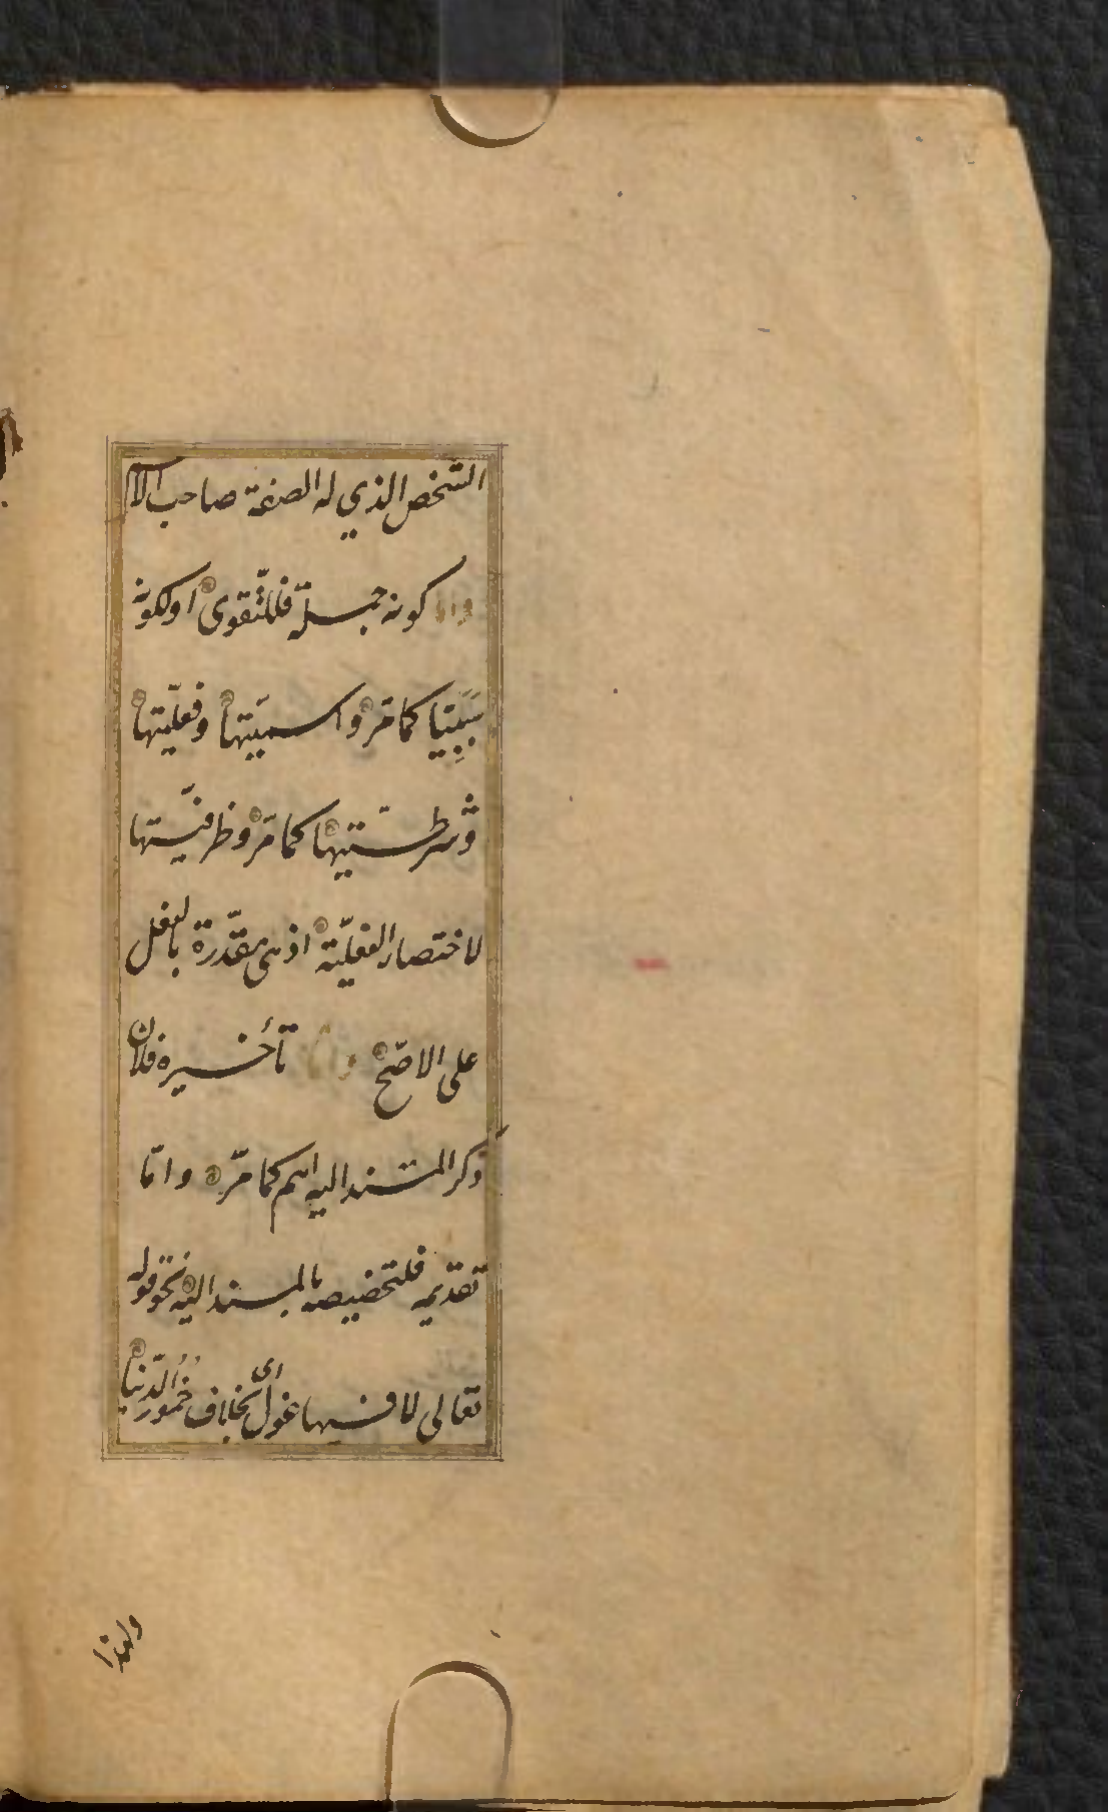 الشخص الذي له الصفة صاحب الاسم
واما كونه جملة فللتّقوى او لكونه
سَبَبِيّا كما مرّ واسميّتها وفعليّتها
وشرطيّتها كما مرّ وظرفيّتها
لاختصار الفعليّة اذ هى مقدّرة بالفعل
على الاصحّ واما تأخيره فلان
ذكر المسند اليه اهم كما مرّ وامّا
تقديمه فلتخصيصه بالمسند اليه نحو قوله
تعالى لا فيها غول اى بخلاف خمور الدّنيا
ولهذا